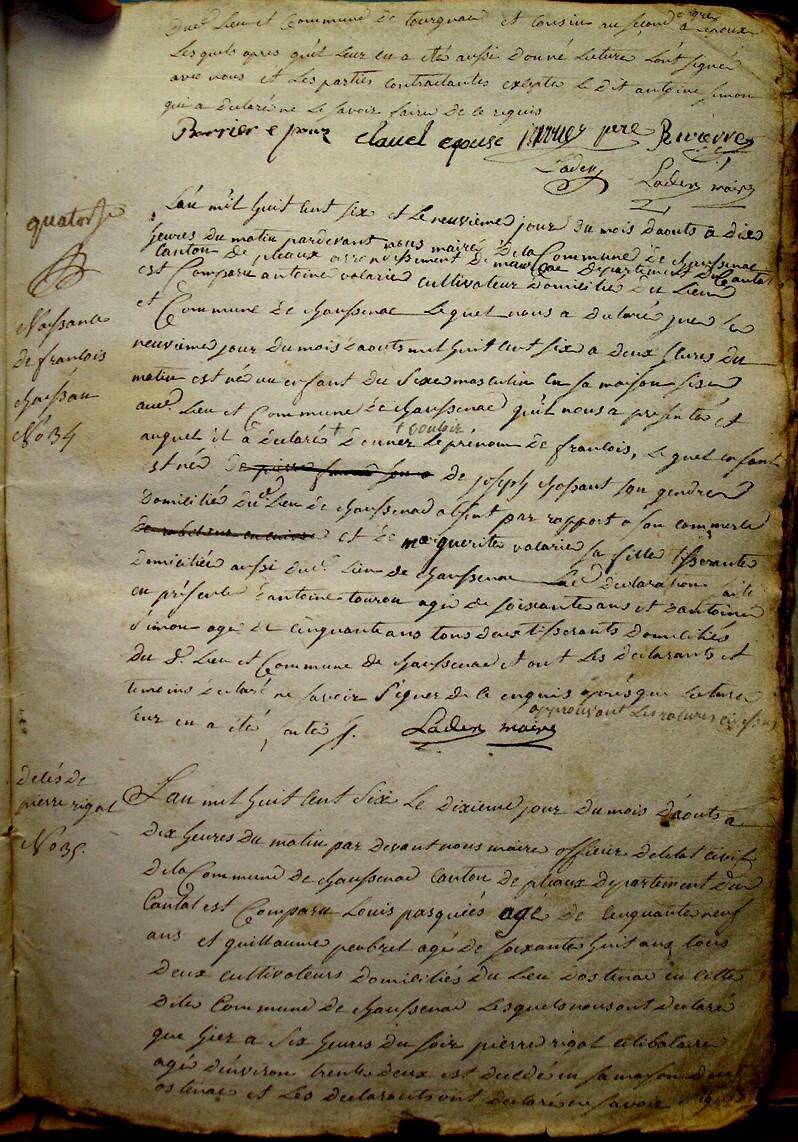 dud. Lieu et Commune de tourgnac et cousin au second degré à l'epoux
Lesquels apres qu'il leur en a eté aussi donné lecture l'ont signé
avec nous et Les parties contractantes excepté Le dit antoine simon
qui a declaré ne Le savoir faire de ce requis
Barrier epoux claucl epouse pere Rivierre
Laden Laden maire
quatorze
L'an mil huit cent six et le neuvieme jour du mois d'aouts à dix
heures du matin pardevant nous maire de la Commune de chaussenac
canton de pleaux arrondissement de mauriac Departement du Cantal
est Comparu antoine valarie cultivateur domicilié du Lieu
et Commune de chaussenac Lequel nous a declaré que le
neuvieme jour du mois d'aouts mil huit cent six a deux heures du
matin est né un enfant du sexe masculin en sa maison sise
aud. Lieu et Commune de chaussenac qu'il nous a presenté et
auquel il a declaré + donner Le prénom de francois, Lequel enfant
+ vouloir
est né de de joseph chossant son gendre
domicilié dud. Lieu de chaussenac absent par rapport a son commerce
et de marguerite valarie sa fille tisserante
domiciliée aussi dud. Lieu de chaussenac La declaration faite
en présence d'antoine tourou agé de soixante ans et d'antoine
simon agé de cinquante ans tous deux tisserants domiciliés
du d. Lieu et Commune de chaussenac et ont Les declarants et
temoins declaré ne savoir signer de ce enquis après que lecture
leur en a été faite
approuvant les ratures ci dessus
Laden maire
Naissance
de francois
chaussan
No 34
deces de
pierre rigal
No 35
L'an mil huit cent six Le dixieme jour du mois d'aouts a
dix heures du matin par devant nous maire officier de l'etat civil
de la Commune de chaussenac canton de pleaux departement du
Cantal est Comparu Louis pasquiés agé de cinquante neuf
ans et guillaume peubrel agé de soixante huit ans tous
deux cultivateurs domiciliés du Lieu d'ostenac en cette
dite Commune de chaussenac Lesquels nous ont declaré
que hier a six heures du soir pierre rigal celibataire
agé d'environ trente deux est decedé en sa maison dud.
ostenac et Les declarants ont declaré ne savoir signer